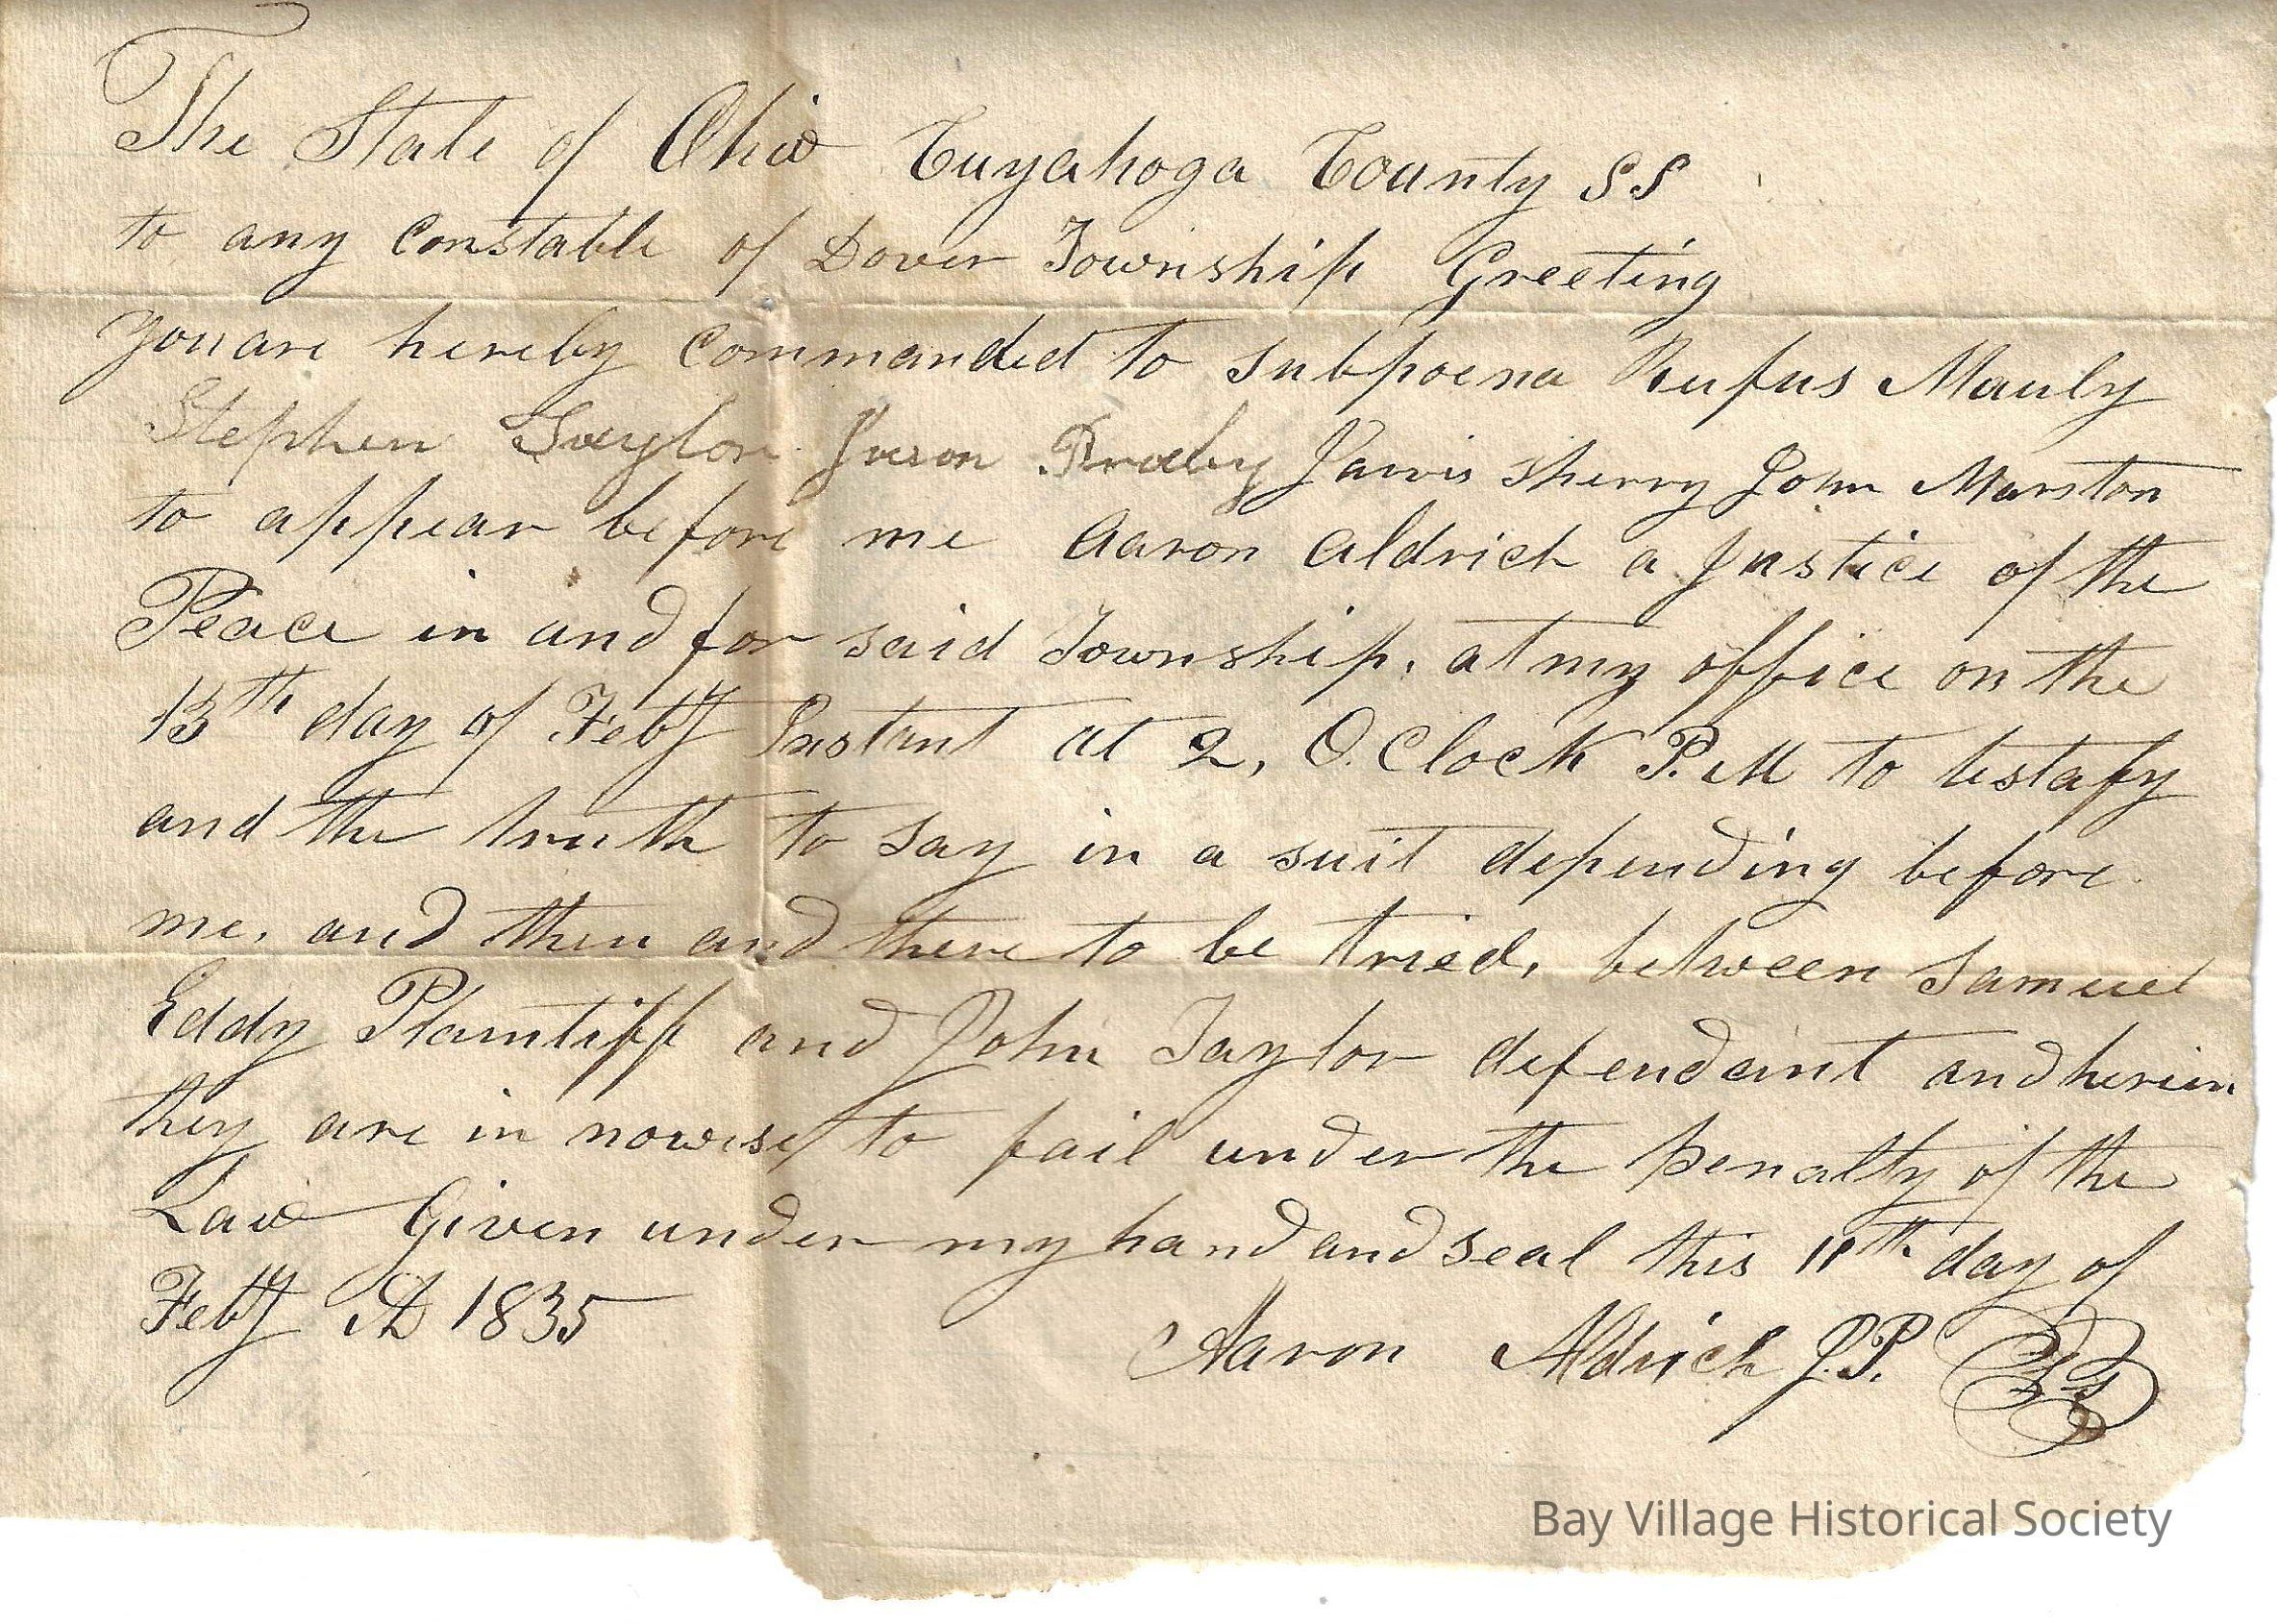 The State of Ohio Cuyahoga County SS
to any Constable of Dover Township Greeting
you are hereby Commanded to subpoena Rufus Mauly
Stephen Taylor Jason Jarvis Sherry John Marston
to appear before me Aaron Aldrich a Justice of the
Peace in and for said Township, at my office on the
13th day of Feby Instant at 2, O.Clock P.M to testafy
and the truth to say in a suit depending before
me, and then and there to be tried, between Samuel
Eddy Plaintiff and John Taylor defendant and herein
they are in nowise to fail under the penalty of the
Law Given under my hand and seal this 11th day of
Feby AD 1835
Aaron Aldrich J.P.
Bay Village Historical Society